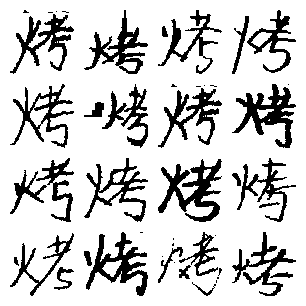 烤烤烤烤
烤烤烤烤
烤烤烤烤
烤烤烤烤